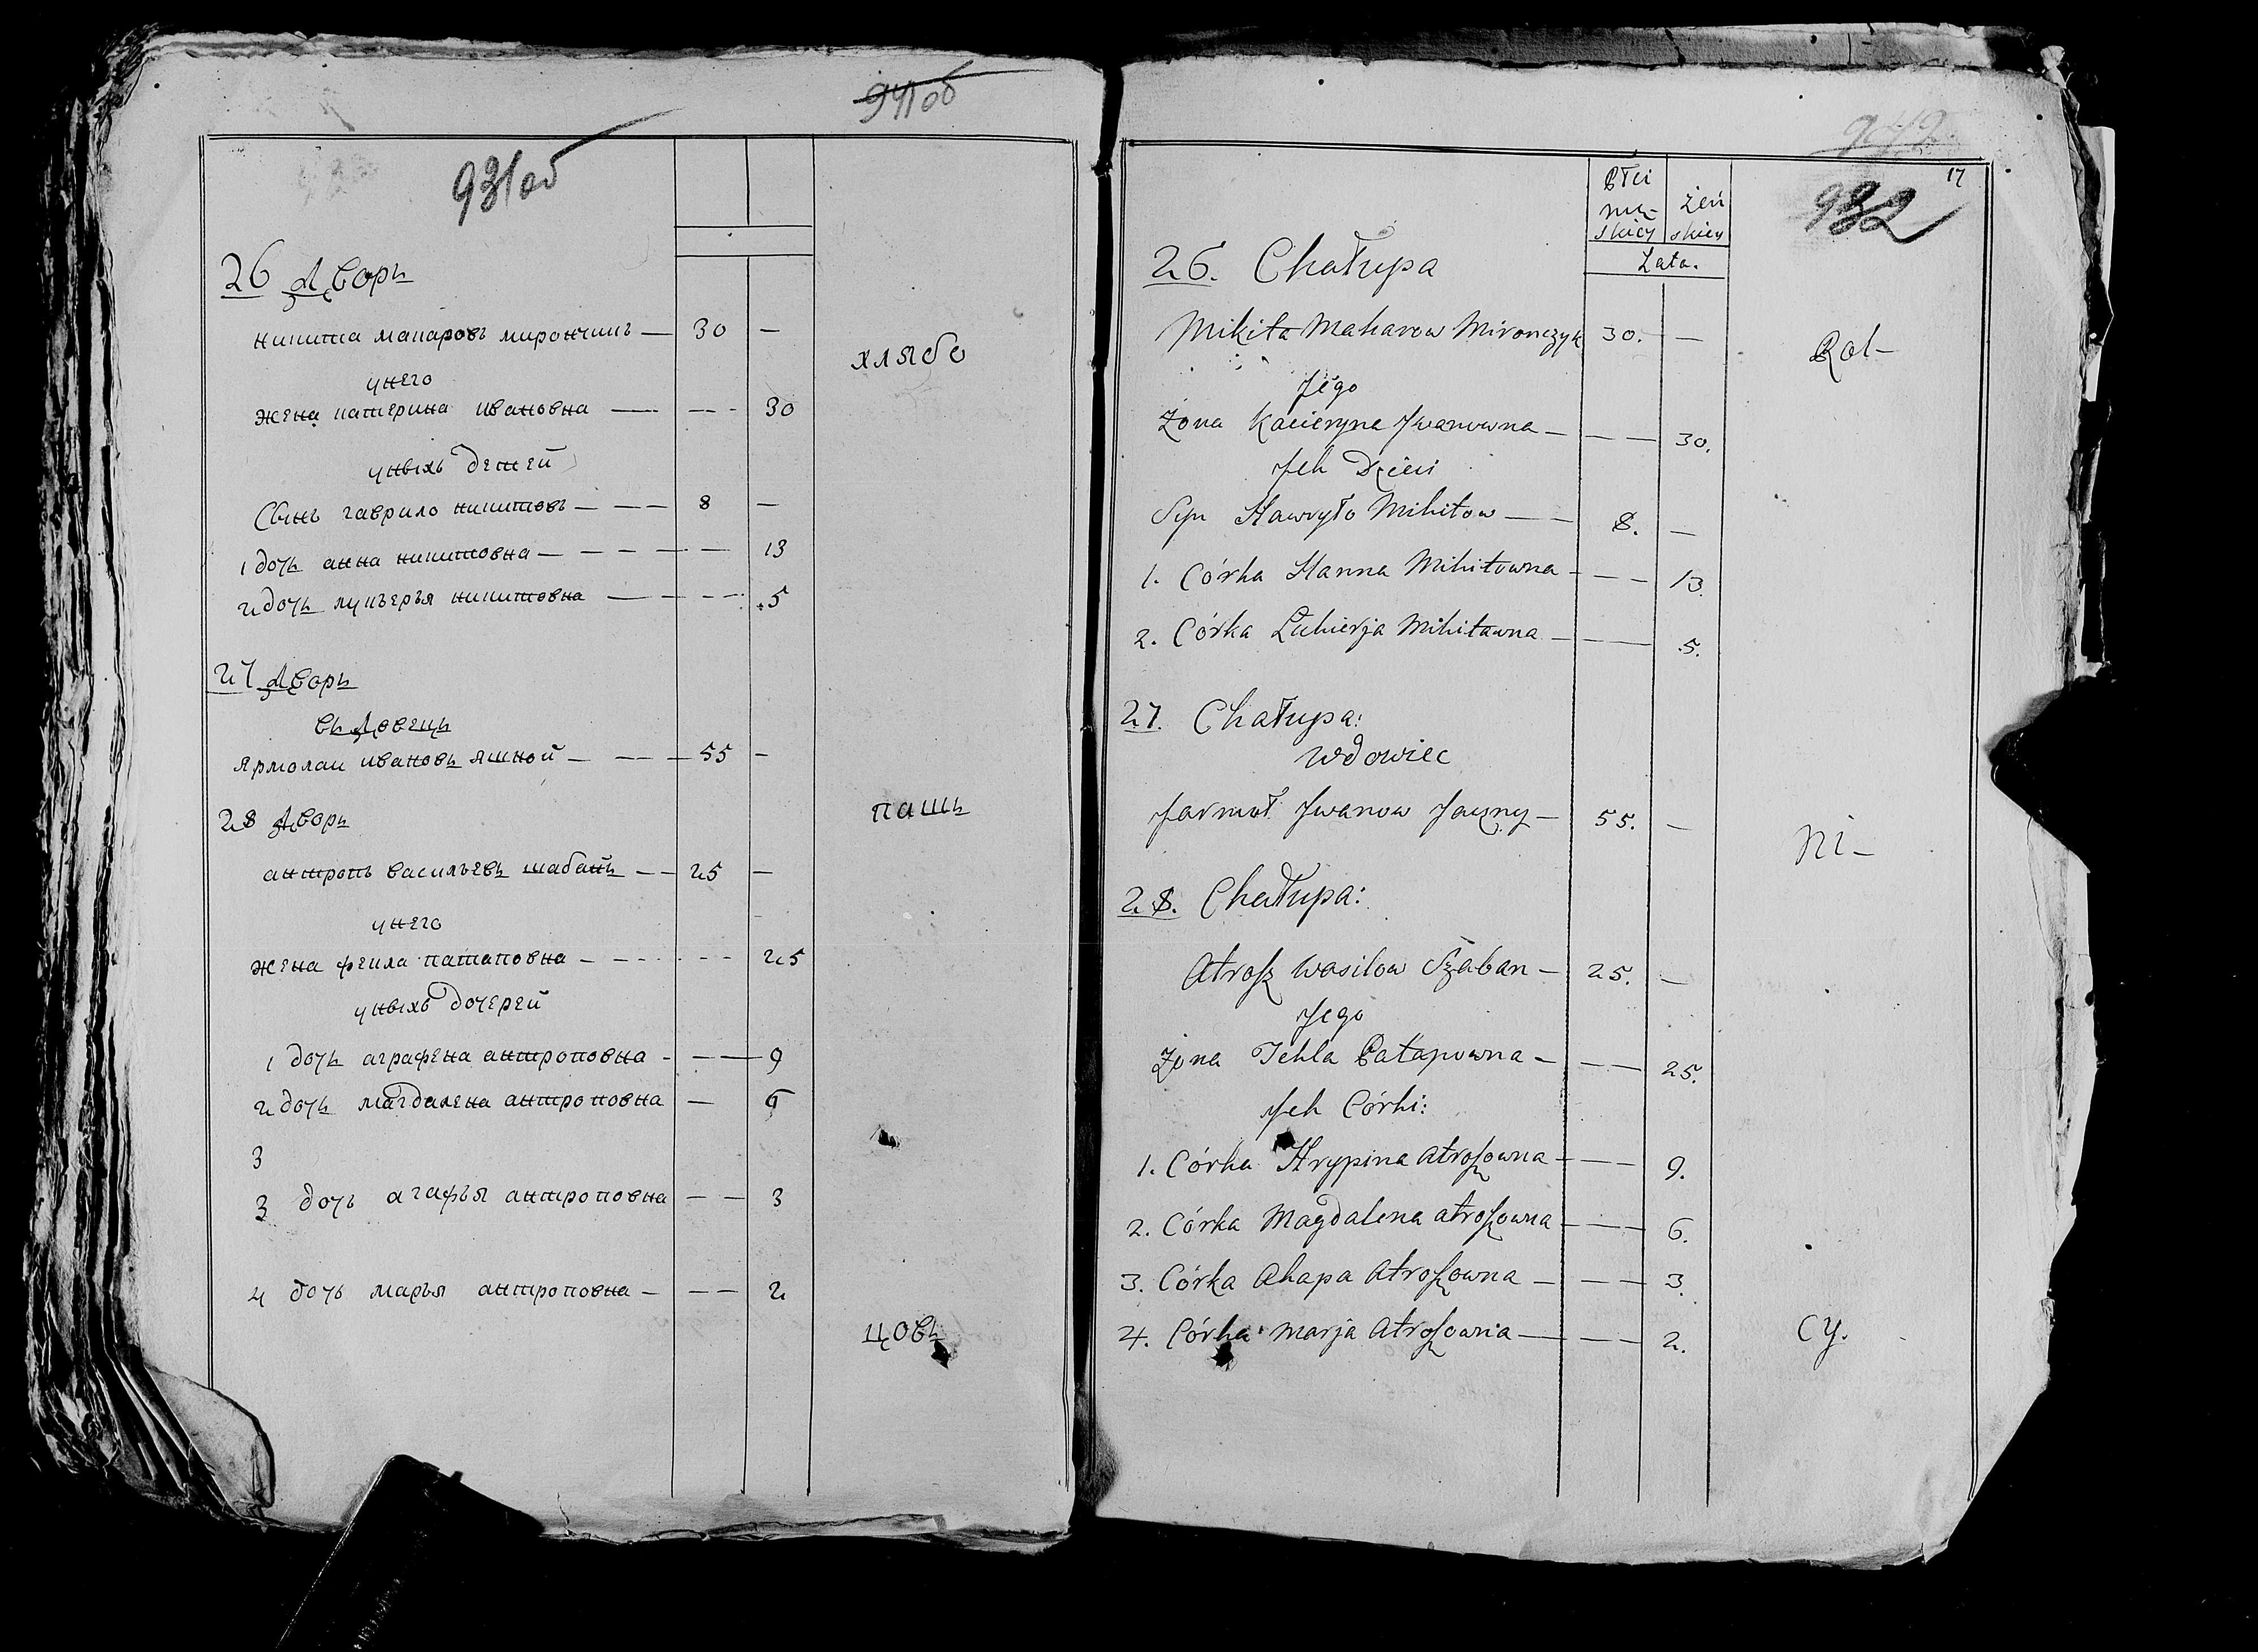 931об
26 дворъ
никита макаровъ мирончикъ — 30 —
унего
жена катерина ивановна — — 30
хлѣбо
уныхъ детей
Сынъ гаврило никитовъ — — — 8 —
1 дочь анна никитовна — — — — — 13
2 дочь лукѣерья никитовна — — — 5
27 дворъ
въдовецъ
ярмолаи ивановъ яшной — — — 55 —
28 дворъ
пашъ
антропъ васильевъ шабанъ — — 25 —
унего
жена фекла патаповна — — — — 25
уныхъ дочерей
1 дочь аграфена антроповна — — — 9
2 дочь магдалена антроповна — 6
3
3 дочь агафья антроповна — — 3
4 дочь марья антроповна — — — 2
цовъ
17
932
Płci
mę-
skiey
żeń
skiey
Lata.
26. Chałupa
Mikita Makarow Mironczyk 30. —
Rol-
Jego
Żona Kacieryna Jwanowna — — — 30.
Jch Dzieci
Syn Hawryło Mikitow — — 8. —
1. Córka Hanna Mikitowna — — — 13.
2. Córka Lukierja Mikitawna — — 5.
27. Chałupa:
Wdowiec
Jarmoł Jwanow Jaszny — 55. —
ni-
28. Chałupa:
Atrosz Wasilow Szaban — 25. —
Jego
Żona Tekla Patapowna — — — 25.
Jch Córki:
1. Córka Hrypina Atroszowna — — — 9.
2. Córka Magdalena Atroszowna — — — 6.
3. Córka Ahapa Atroszowna — — — 3.
4. Córka Marja Atroszowna — — — 2.
cy.